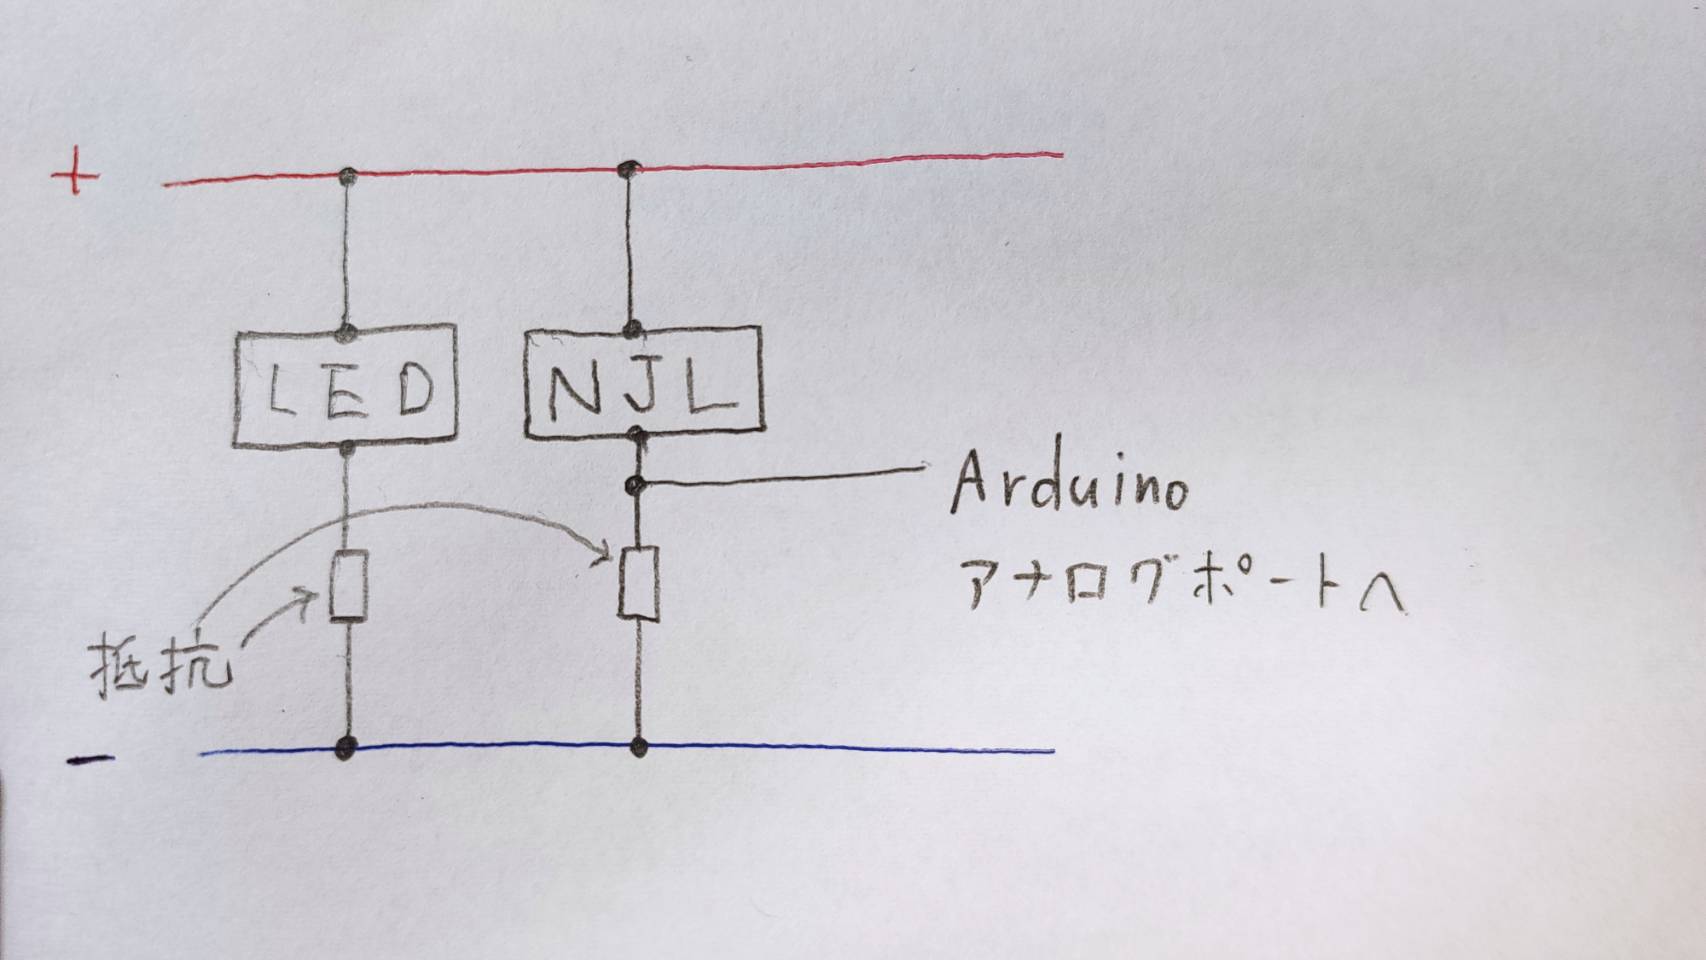 +
LED
NJL
Arduino
アナログポートへ
抵抗
-